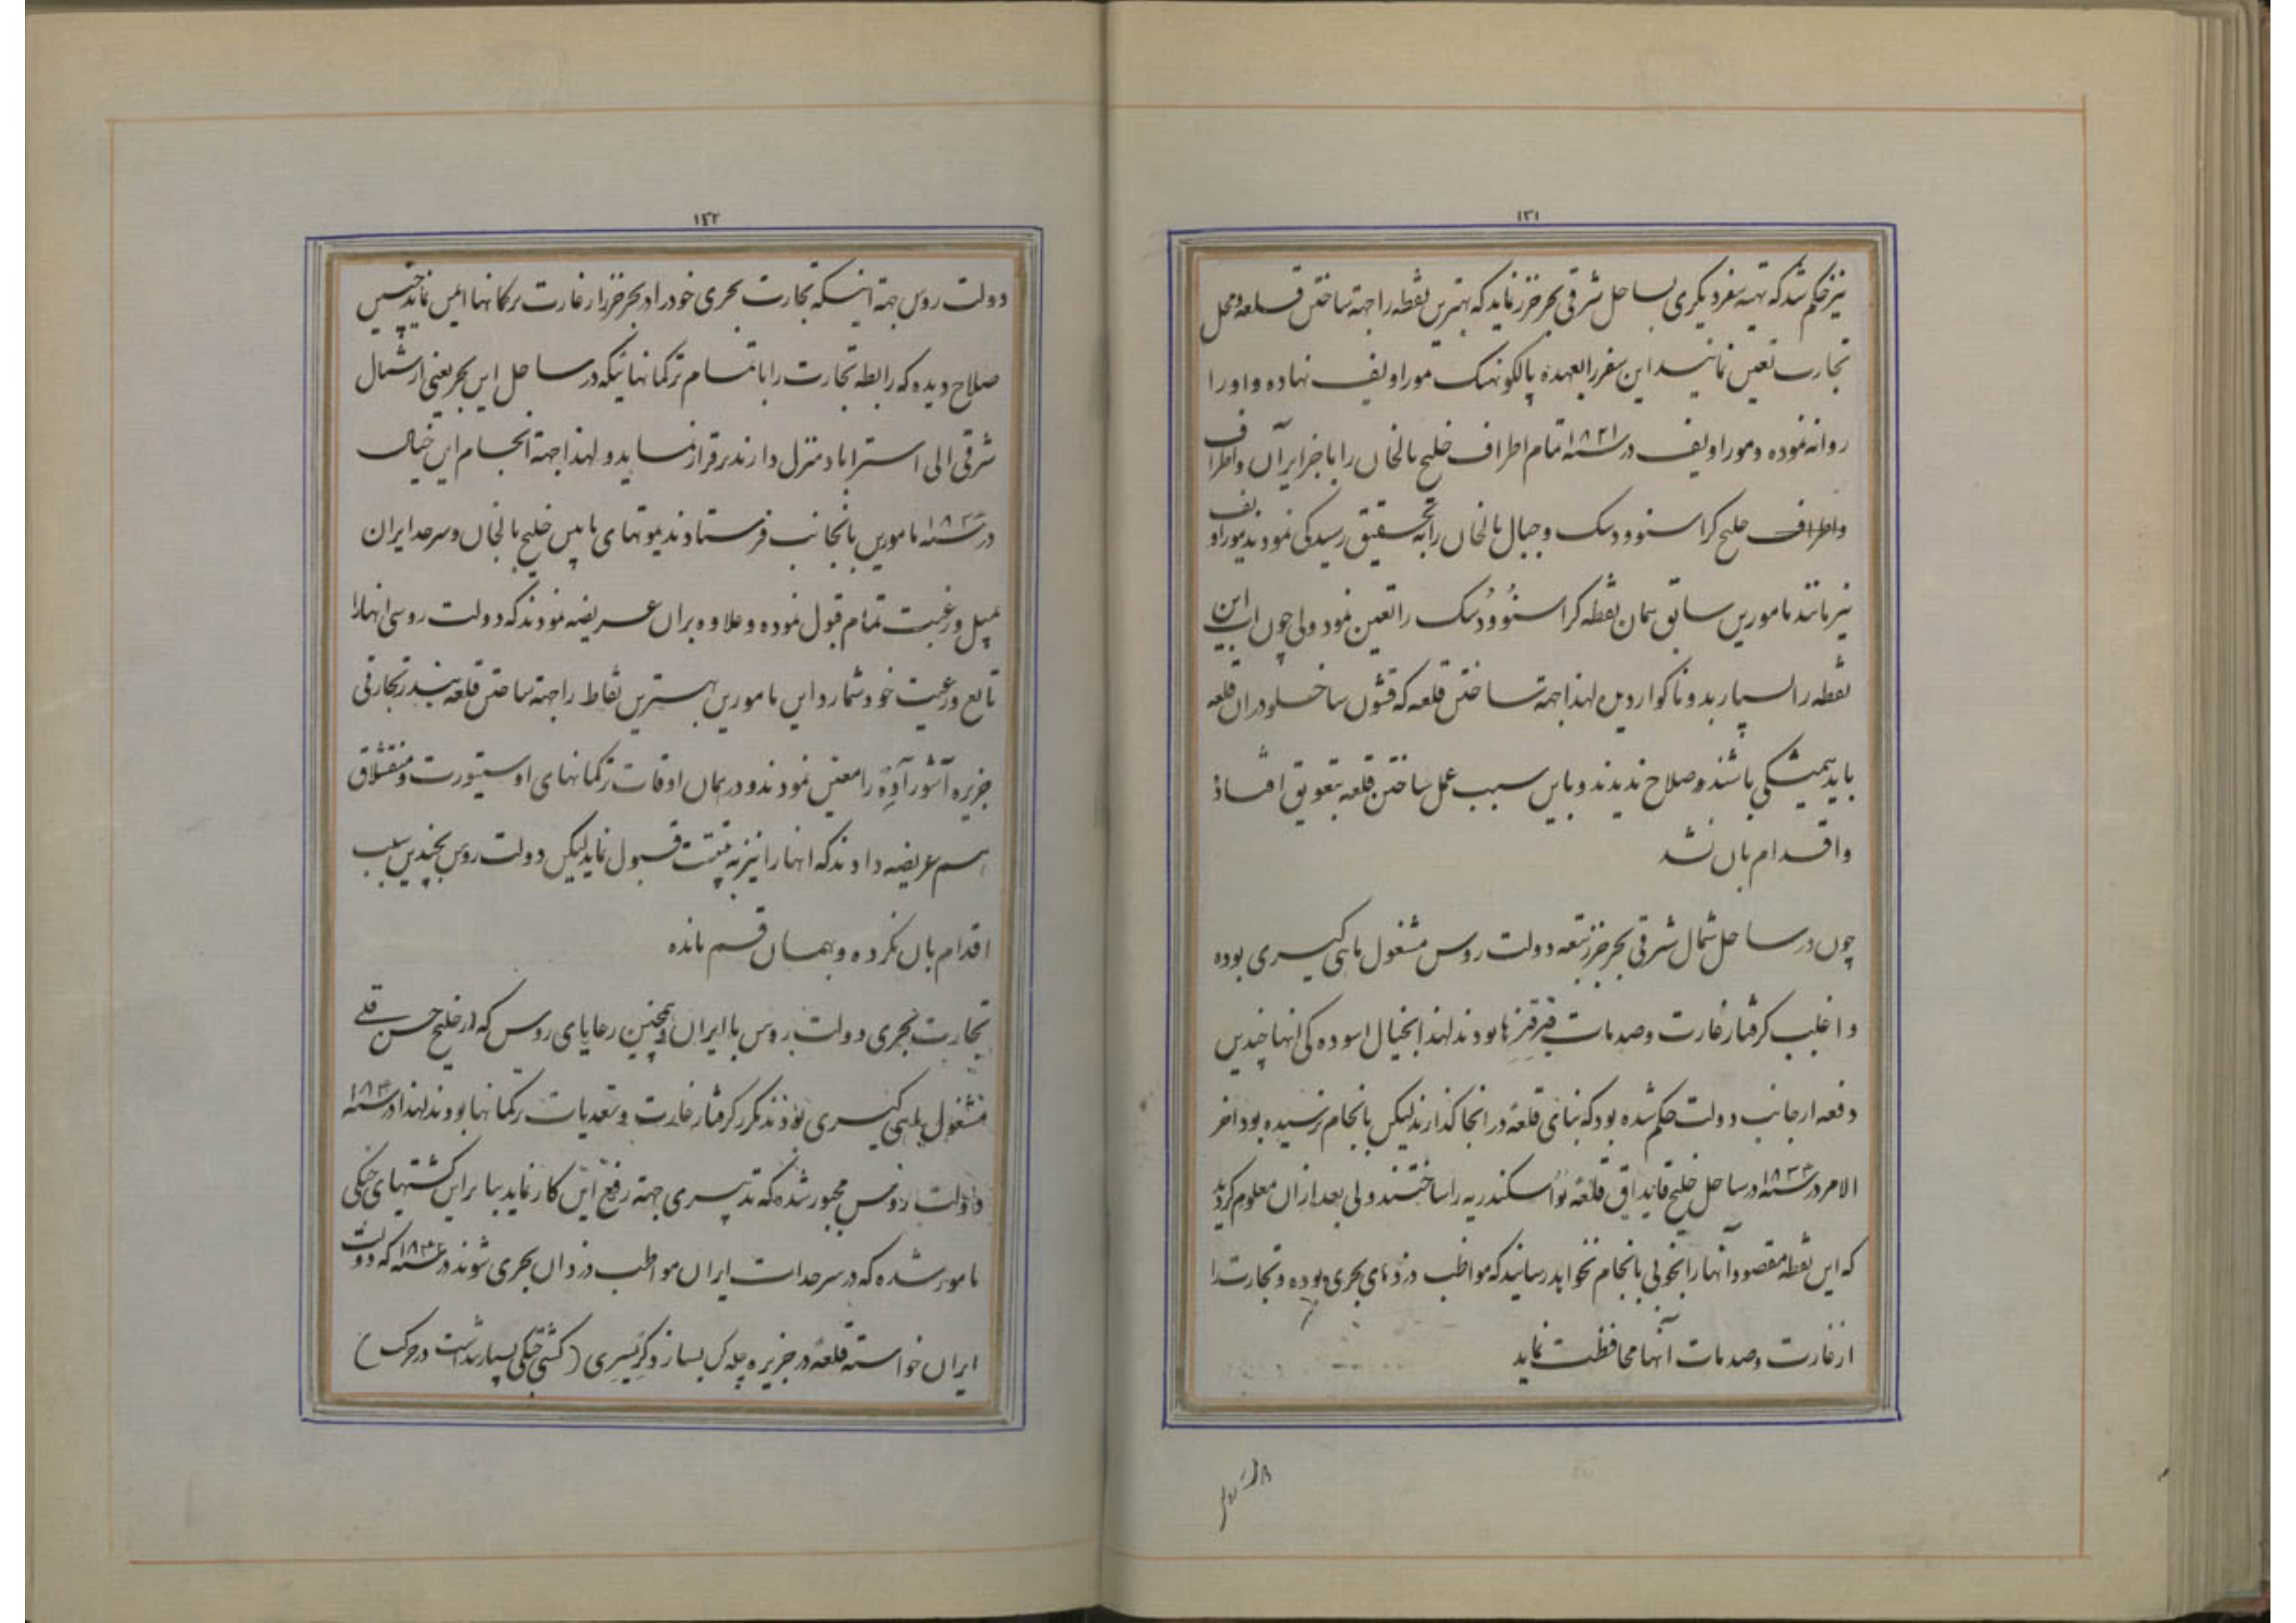 ١٣١
نیز حکم شد که تهیه سفر دیگری بساحل شرقی بحر خزر نماید که بهترین نقطه را جهة ساختن قلعه و محل
تجارت تعین نمانید این سفر را بعهده پالکونیک موراویف نهاده و او را
روانه نموده و موراویف در سنه ١٨٢١ تمام اطراف خلیج بالخان را با جزایر آن و اطراف
واطراف خلیج کراسنوودسک و جبال بالخان را به تحقیق رسیدگی نمودند موراویف
نیز مانند مامورین سابق همان نقطه کراسنوودسک را تعین نمود ولی چون آب این
نقطه را بسیار بد و ناگوار دیدند لهذا جهة ساختن قلعه که قشون ساخلو در ان قلعه
باید همیشگی باشند صلاح ندیدند و باین سبب عمل ساختن قلعه بتعویق افتاد
و اقدام بان نشد
چون در ساحل شمال شرقی بحر خزر تبعه دولت روس مشغول ماهی گیری بوده
و اغلب گرفتار غارت و صدمات قرقیزها بودند لهذا بخیال اسوده گی انها چندین
دفعه از جانب دولت حکم شده بود که بنای قلعه در انجا گذارند لیکن بانجام نرسیده بود اخر
الامر در سنه ١٨٣٣ در ساحل خلیج قایداق قلعه نو اسکندریه را ساختند ولی بعد از ان معلوم گردید
که این نقطه مقصود آنها را بخوبی بانجام نخواهد رسانید که مواظب دزدهای بحری بوده و تجارت را
از غارت و صدمات آنها محافظت نماید
١٤٢
دولت روس جهة اینکه تجارت بحری خود را در بحر خزر از غارت ترکمانها ایمن نماید چنین
صلاح دیده که رابطه تجارت را با تمام ترکمانهائیکه در ساحل این بحر یعنی از شمال
شرقی الی استراباد منزل دارند برقرار نماید و لهذا جهة انجام این خیال
در سنه مامورین بانجانب فرستادند یموتهای مابین خلیج بالخان و سرحد ایران
بمیل و رغبت تمام قبول نموده و علاوه بران عریضه نمودند که دولت روسی انها را
تابع و رعیت خود شمارد این مامورین بهترین نقاط را جهة ساختن قلعه بندر تجارتی
جزیره آشورآده را معین نمودند و در همان اوقات ترکمانهای اوستیورت و منقشلاق
هم عریضه دادند که انها را نیز به تبعیت قبول نماید لیکن دولت روس بچندین سبب
اقدام بان نکرده و بهمان قسم مانده
تجارت بحری دولت روس با ایران و همچنین رعایای روس که در خلیج حسن قلی
مشغول ماهی گیری بودند مکرر گرفتار غارت و تعدیات ترکمانها بودند لهذا در سنه
دولت روس مجبور شده که تدبیری جهة رفع این کار نماید بنا براین کشتیهای جنگی
مامور شده که در سرحدات ایران مواظب دزدان بحری شوند در سنه که دولت
ایران خواسته قلعه در جزیره چلکن بسازد (کشتی جنگی